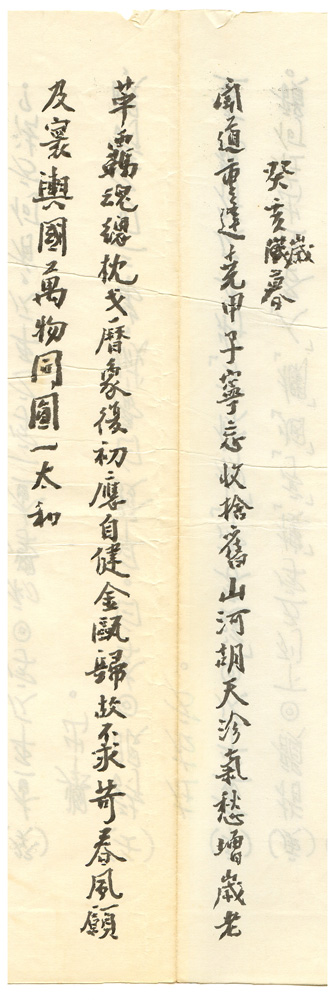 癸亥歲暮
聞道重逢堯甲子寧忘收拾舊山河胡天冷氣愁增歲老
革羈魂總枕戈曆象復初應自健金甌歸故不求苛春風願
及寰輿國萬物同圖一太和